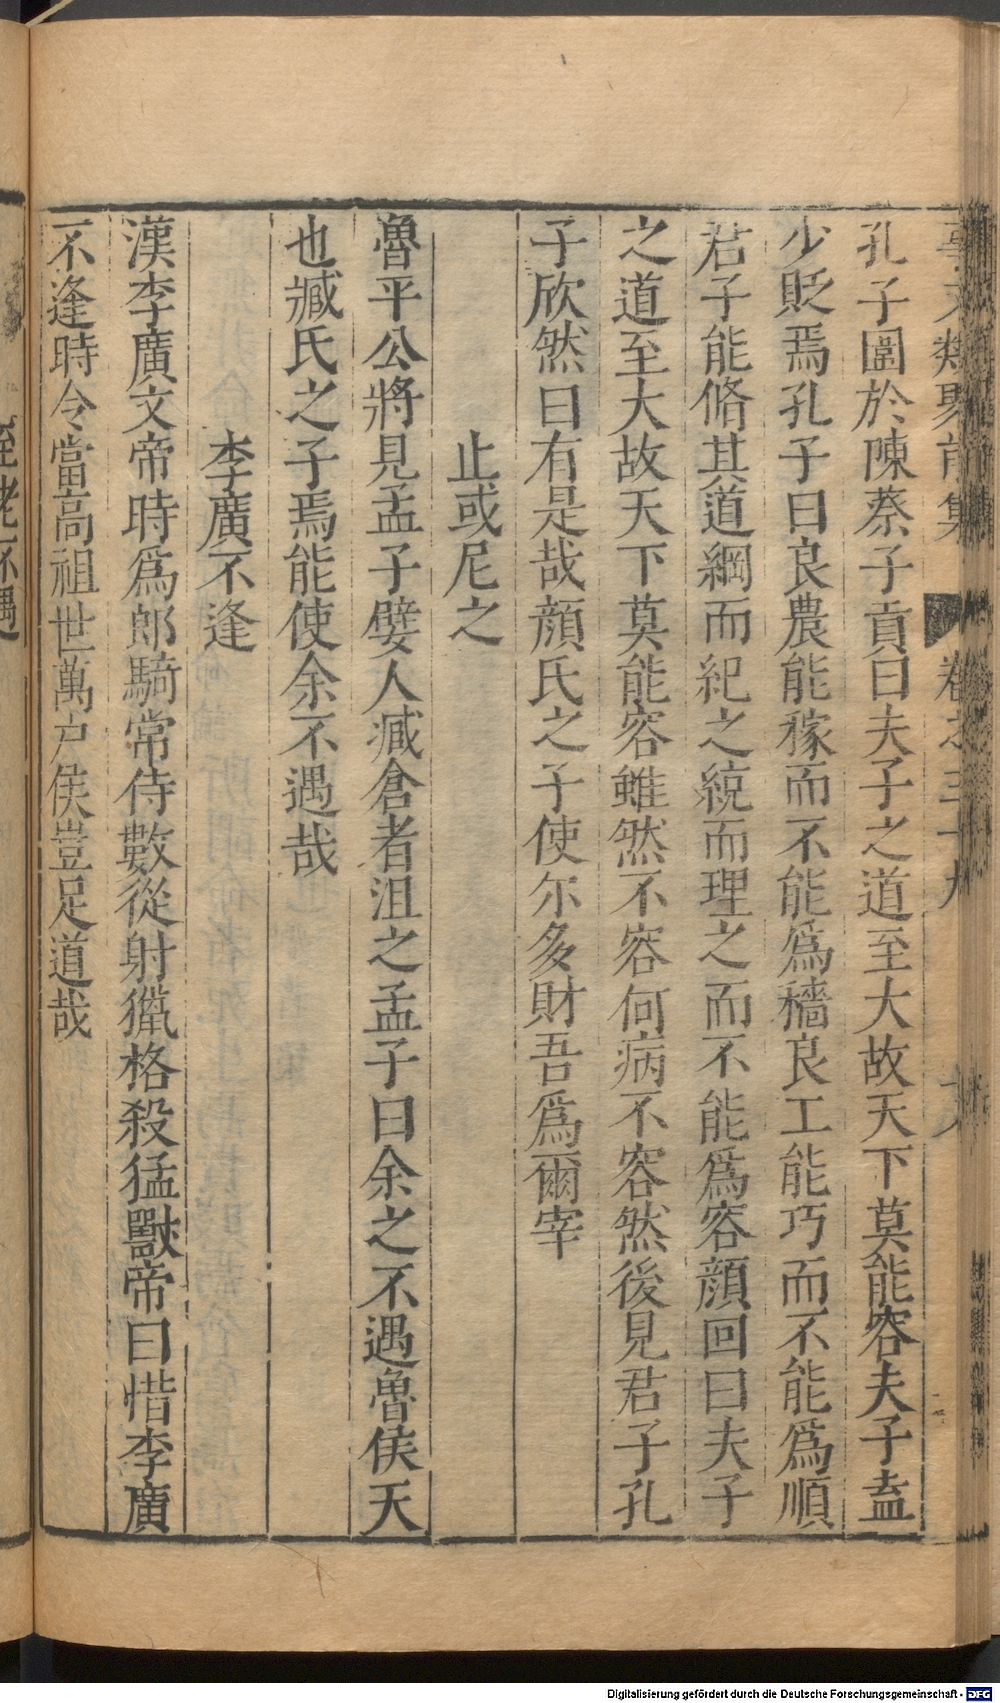 事文類聚前集　卷之三十九　十八
孔子圍於陳蔡子貢曰夫子之道至大故天下莫能容夫子盍
少貶焉孔子曰良農能稼而不能爲穡良工能巧而不能爲順
君子能脩其道綱而紀之統而理之而不能爲容顔回曰夫子
之道至大故天下莫能容雖然不容何病不容然後見君子孔
子欣然曰有是哉顔氏之子使尔多財吾爲爾宰
止或尼之
魯平公將見孟子嬖人臧倉者沮之孟子曰余之不遇魯侯天
也臧氏之子焉能使余不遇哉
李廣不逢
漢李廣文帝時爲郎騎常侍數從射獵格殺猛獸帝曰惜李廣
不逢時令當高祖世萬户侯豈足道哉
至老不遇
Digitalisierung gefördert durch die Deutsche Forschungsgemeinschaft - DFG